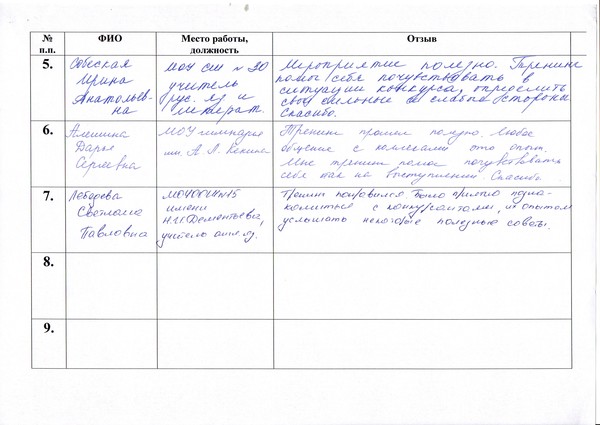 № п.п. ФИО Место работы, должность Отзыв
5.
Собеская
Ирина
Анатольев-
на
МОУ СШ № 30
учитель
рус. яз и
литерат.
Мероприятие полезно. Тренинг
помог себя почувствовать в
ситуации конкурса, определить
свои сильные и слабые стороны.
Спасибо.
6.
Алешина
Дарья
Сергеевна
МОУ гимназия
им. А. Л. Кекина
Тренинг прошел полезно. Любое
общение с коллегами это опыт.
Мне тренинг помог почувствовать
себя как на выступлении. Спасибо
7.
Лебедева
Светлана
Павловна
имени
Н.И. Дементьева,
учитель англ. яз.
Тренинг понравился. Было приятно позна-
комиться с конкурсантами, их опытом
услышать некоторые полезные советы.
8.
9.